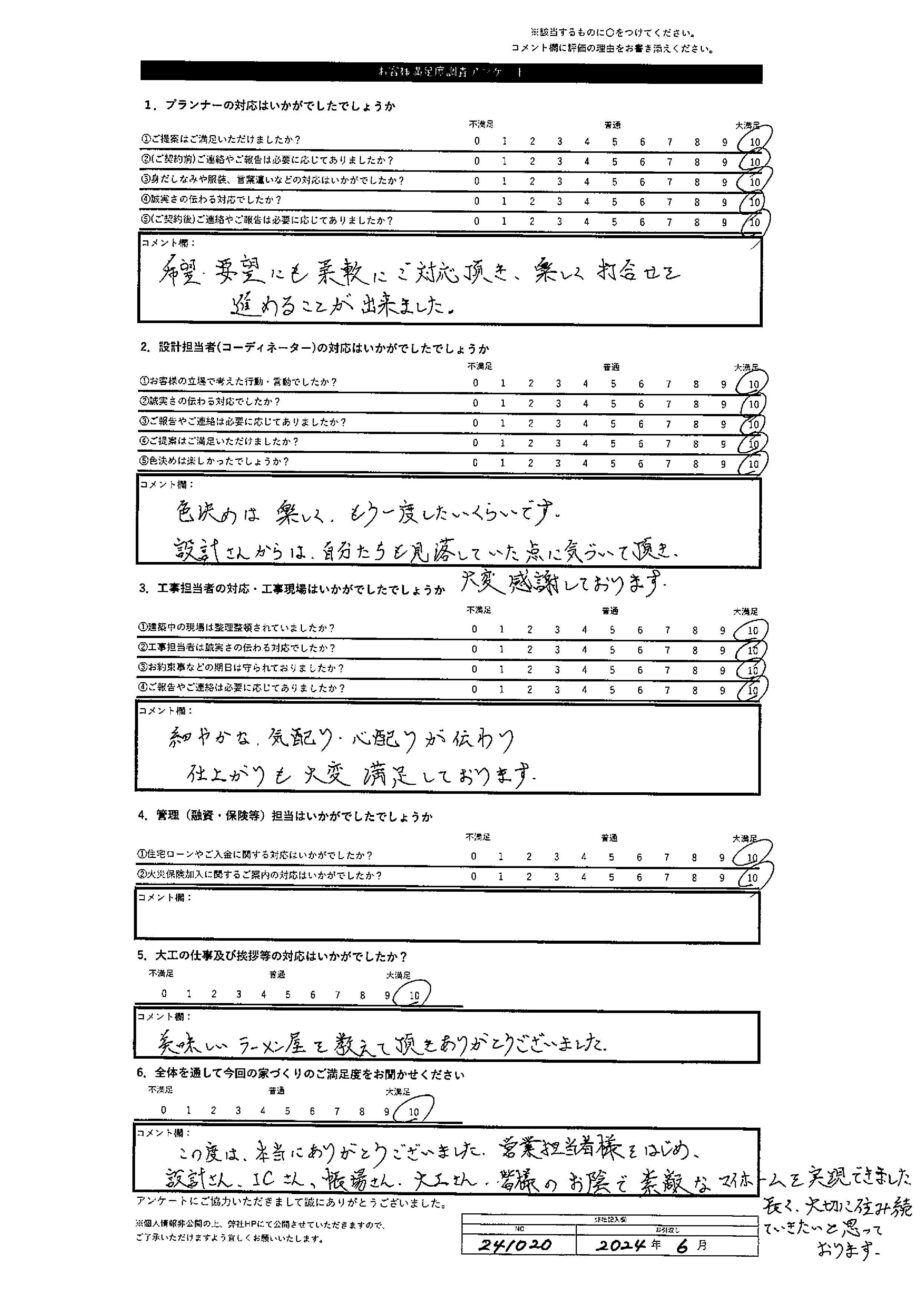 ※該当するものに〇をつけてください。
コメント欄に評価の理由をお書き添えください。
お客様満足度調査アンケート
1．プランナーの対応はいかがでしたでしょうか
不満足 普通 大満足
①ご提案はご満足いただけましたか？ 0 1 2 3 4 5 6 7 8 9 10
②(ご契約前)ご連絡やご報告は必要に応じてありましたか？ 0 1 2 3 4 5 6 7 8 9 10
③身だしなみや服装、言葉遣いなどの対応はいかがでしたか？ 0 1 2 3 4 5 6 7 8 9 10
④誠実さの伝わる対応でしたか？ 0 1 2 3 4 5 6 7 8 9 10
⑤(ご契約後)ご連絡やご報告は必要に応じてありましたか？ 0 1 2 3 4 5 6 7 8 9 10
コメント欄：
希望・要望にも柔軟にご対応頂き、楽しく打合せを
進めることが出来ました。
2．設計担当者(コーディネーター)の対応はいかがでしたでしょうか
不満足 普通 大満足
①お客様の立場で考えた行動・言動でしたか？ 0 1 2 3 4 5 6 7 8 9 10
②誠実さの伝わる対応でしたか？ 0 1 2 3 4 5 6 7 8 9 10
③ご報告やご連絡は必要に応じてありましたか？ 0 1 2 3 4 5 6 7 8 9 10
④ご提案はご満足いただけましたか？ 0 1 2 3 4 5 6 7 8 9 10
⑤色決めは楽しかったでしょうか？ 0 1 2 3 4 5 6 7 8 9 10
コメント欄：
色決めは楽しく、もう一度したいくらいです。
設計さんからは、自分たちも見落していた点に気づいて頂き、
大変感謝しております。
3．工事担当者の対応・工事現場はいかがでしたでしょうか
不満足 普通 大満足
①建築中の現場は整理整頓されていましたか？ 0 1 2 3 4 5 6 7 8 9 10
②工事担当者は誠実さの伝わる対応でしたか？ 0 1 2 3 4 5 6 7 8 9 10
③お約束事などの期日は守られておりましたか？ 0 1 2 3 4 5 6 7 8 9 10
④ご報告やご連絡は必要に応じてありましたか？ 0 1 2 3 4 5 6 7 8 9 10
コメント欄：
細やかな、気配り・心配りが伝わり
仕上がりも大変満足しております。
4．管理（融資・保険等）担当はいかがでしたでしょうか
不満足 普通 大満足
①住宅ローンやご入金に関する対応はいかがでしたか？ 0 1 2 3 4 5 6 7 8 9 10
②火災保険加入に関するご案内の対応はいかがでしたか？ 0 1 2 3 4 5 6 7 8 9 10
コメント欄：
5．大工の仕事及び挨拶等の対応はいかがでしたか？
不満足 普通 大満足
0 1 2 3 4 5 6 7 8 9 10
コメント欄：
美味しいラーメン屋を教えて頂きありがとうございました。
6．全体を通して今回の家づくりのご満足度をお聞かせください
不満足 普通 大満足
0 1 2 3 4 5 6 7 8 9 10
コメント欄：
この度は、本当にありがとうございました。営業担当者様をはじめ、
設計さん、ICさん、帳場さん、大工さん、皆様のお陰で素敵なマイホームを実現できました
長く、大切に住み続
ていきたいと思って
おります。
アンケートにご協力いただきまして誠にありがとうございました。
※個人情報非公開の上、弊社HPにて公開させていただきますので、
ご了承いただけますよう宜しくお願いいたします。
弊社記入欄
NO お引渡し
241020 2024年 6月